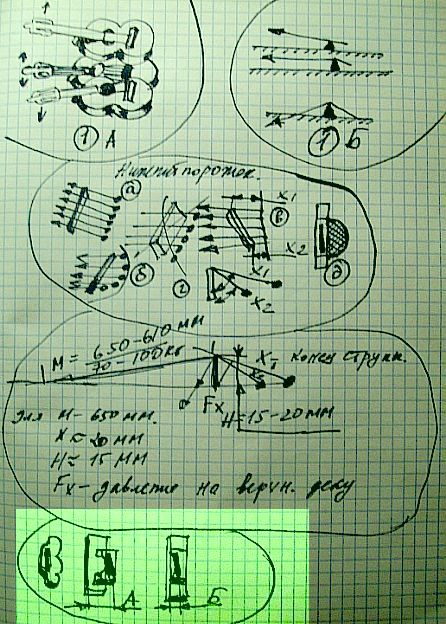 1 А
1 Б
Нижний порожек.
а
б
г
в
д
X1
X2
X1
X2
M = 650-610 мм
70-100 кг
X, конец струны.
Fx
H=15-20мм
Для M-650 мм.
X≈20 мм
H≈15 мм
Fx- давление на верхн. деку
А
Б